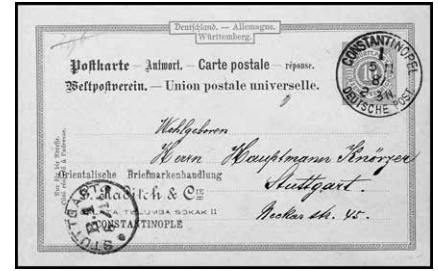 Deutschland. — Allemagne.
Württemberg.
Postkarte — Antwort. — Carte postale — réponse.
Weltpostverein. — Union postale universelle.
CONSTANTINOPEL 1
DEUTSCHE POST
Wohlgeboren
Herrn Hauptmann Knörzer
Orientalische Briefmarkenhandlung
Stuttgart.
S. Raditch & Cie
Neckarstr. 45.
SOKAK 11
CONSTANTINOPLE
STUTTGART